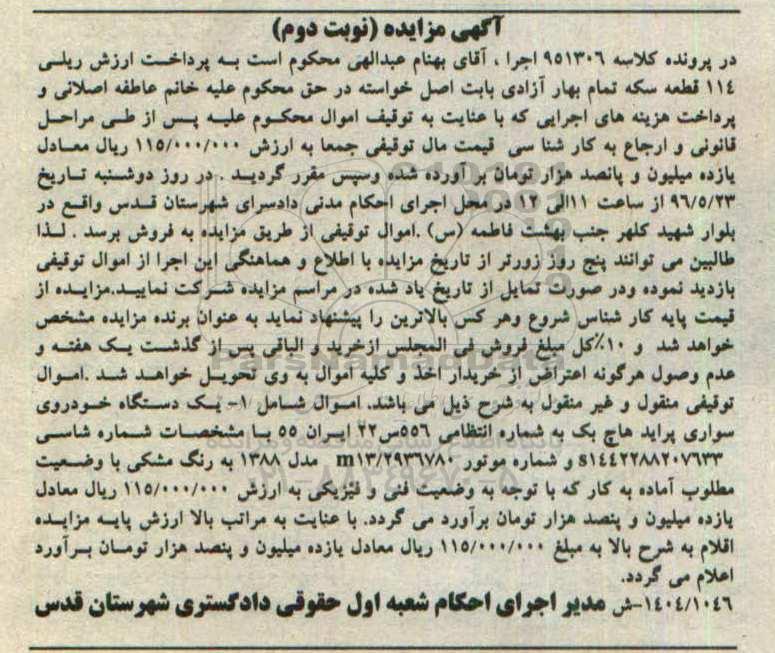 آگهی مزایده (نوبت دوم)
در پرونده کلاسه ۹۵۱۳۰۶ اجرا ، آقای بهنام عبدالهی محکوم است به پرداخت ارزش ریلی
۱۱۴ قطعه سکه تمام بهار آزادی بابت اصل خواسته در حق محکوم علیه خانم عاطفه اصلانی و
پرداخت هزینه های اجرایی که با عنایت به توقیف اموال محکوم علیه پس از طی مراحل
قانونی و ارجاع به کار شنا سی قیمت مال توقیفی جمعا به ارزش ۱۱۵/۰۰۰/۰۰۰ ریال معادل
یازده میلیون و پانصد هزار تومان بر آورده شده وسپس مقرر گردید . در روز دوشنبه تاریخ
۹۶/۵/۲۳ از ساعت ۱۱الی ۱۲ در محل اجرای احکام مدنی دادسرای شهرستان قدس واقع در
بلوار شهید کلهر جنب بهشت فاطمه (س) .اموال توقیفی از طریق مزایده به فروش برسد . لذا
طالبین می توانند پنج روز زورتر از تاریخ مزایده با اطلاع و هماهنگی این اجرا از اموال توقیفی
بازدید نموده ودر صورت تمایل از تاریخ یاد شده در مراسم مزایده شرکت نمایید.مزایده از
قیمت پایه کار شناس شروع وهر کس بالاترین را پیشنهاد نماید به عنوان برنده مزایده مشخص
خواهد شد و ۱۰٪کل مبلغ فروش فی المجلس ازخرید و الباقی پس از گذشت یک هفته و
عدم وصول هرگونه اعتراض از خریدار اخذ و کلیه اموال به وی تحویل خواهد شد .اموال
توقیفی منقول و غیر منقول به شرح ذیل می باشد. اموال شامل ۱- یک دستگاه خودروی
سواری پراید هاچ بک به شماره انتظامی ۵۵۶س۲۲ ایران ۵۵ با مشخصات شماره شاسی
s۱۴۴۲۲۸۸۲۰۷۶۳۳ و شماره موتور m۱۳/۲۹۳۶۷۸۰ مدل ۱۳۸۸ به رنگ مشکی با وضعیت
مطلوب آماده به کار که با توجه به وضعیت فنی و فیزیکی به ارزش ۱۱۵/۰۰۰/۰۰۰ ریال معادل
یازده میلیون و پنصد هزار تومان برآورد می گردد. با عنایت به مراتب بالا ارزش پایه مزایده
اقلام به شرح بالا به مبلغ ۱۱۵/۰۰۰/۰۰۰ ریال معادل یازده میلیون و پنصد هزار تومان برآورد
اعلام می گردد.
۱۴۰۴/۱۰۴۶-ش مدیر اجرای احکام شعبه اول حقوقی دادگستری شهرستان قدس
ParsNamadData